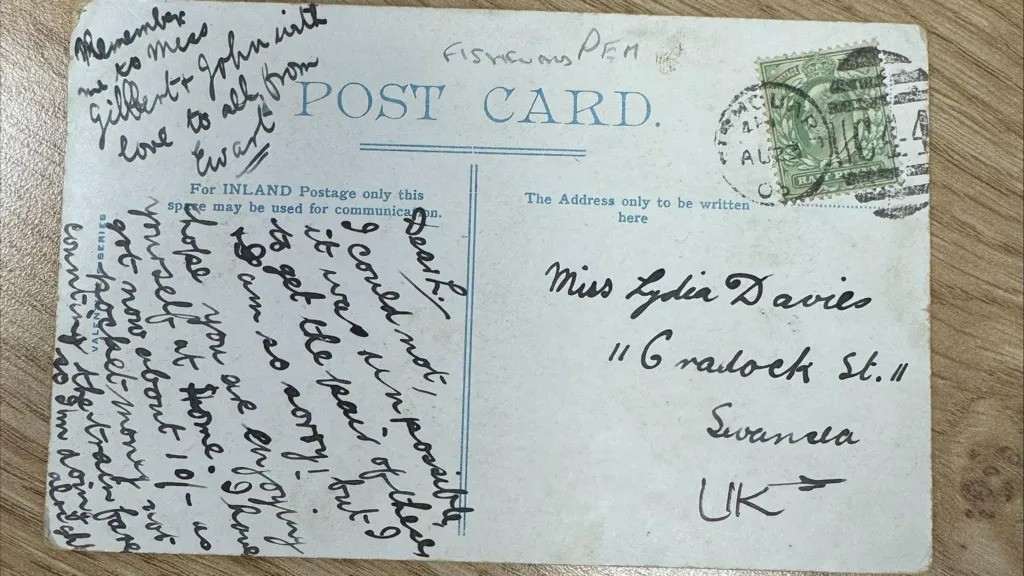 Remember
me to Miss
Gilbert + John with
love to all from
Ewart
FISHGUARD PEM
POST CARD.
For INLAND Postage only this
space may be used for communication.
The Address only to be written
here
Dear L.
I could not,
it was impossible,
to get the pair of these
I am so sorry! but I
hope you are enjoying
yourself at home. I have
got now about 10/- as
pocket money not
counting the train fare
so I'm doing alright
Miss Lydia Davies
11 Cradock St.
Swansea
UK
SERIES
AU